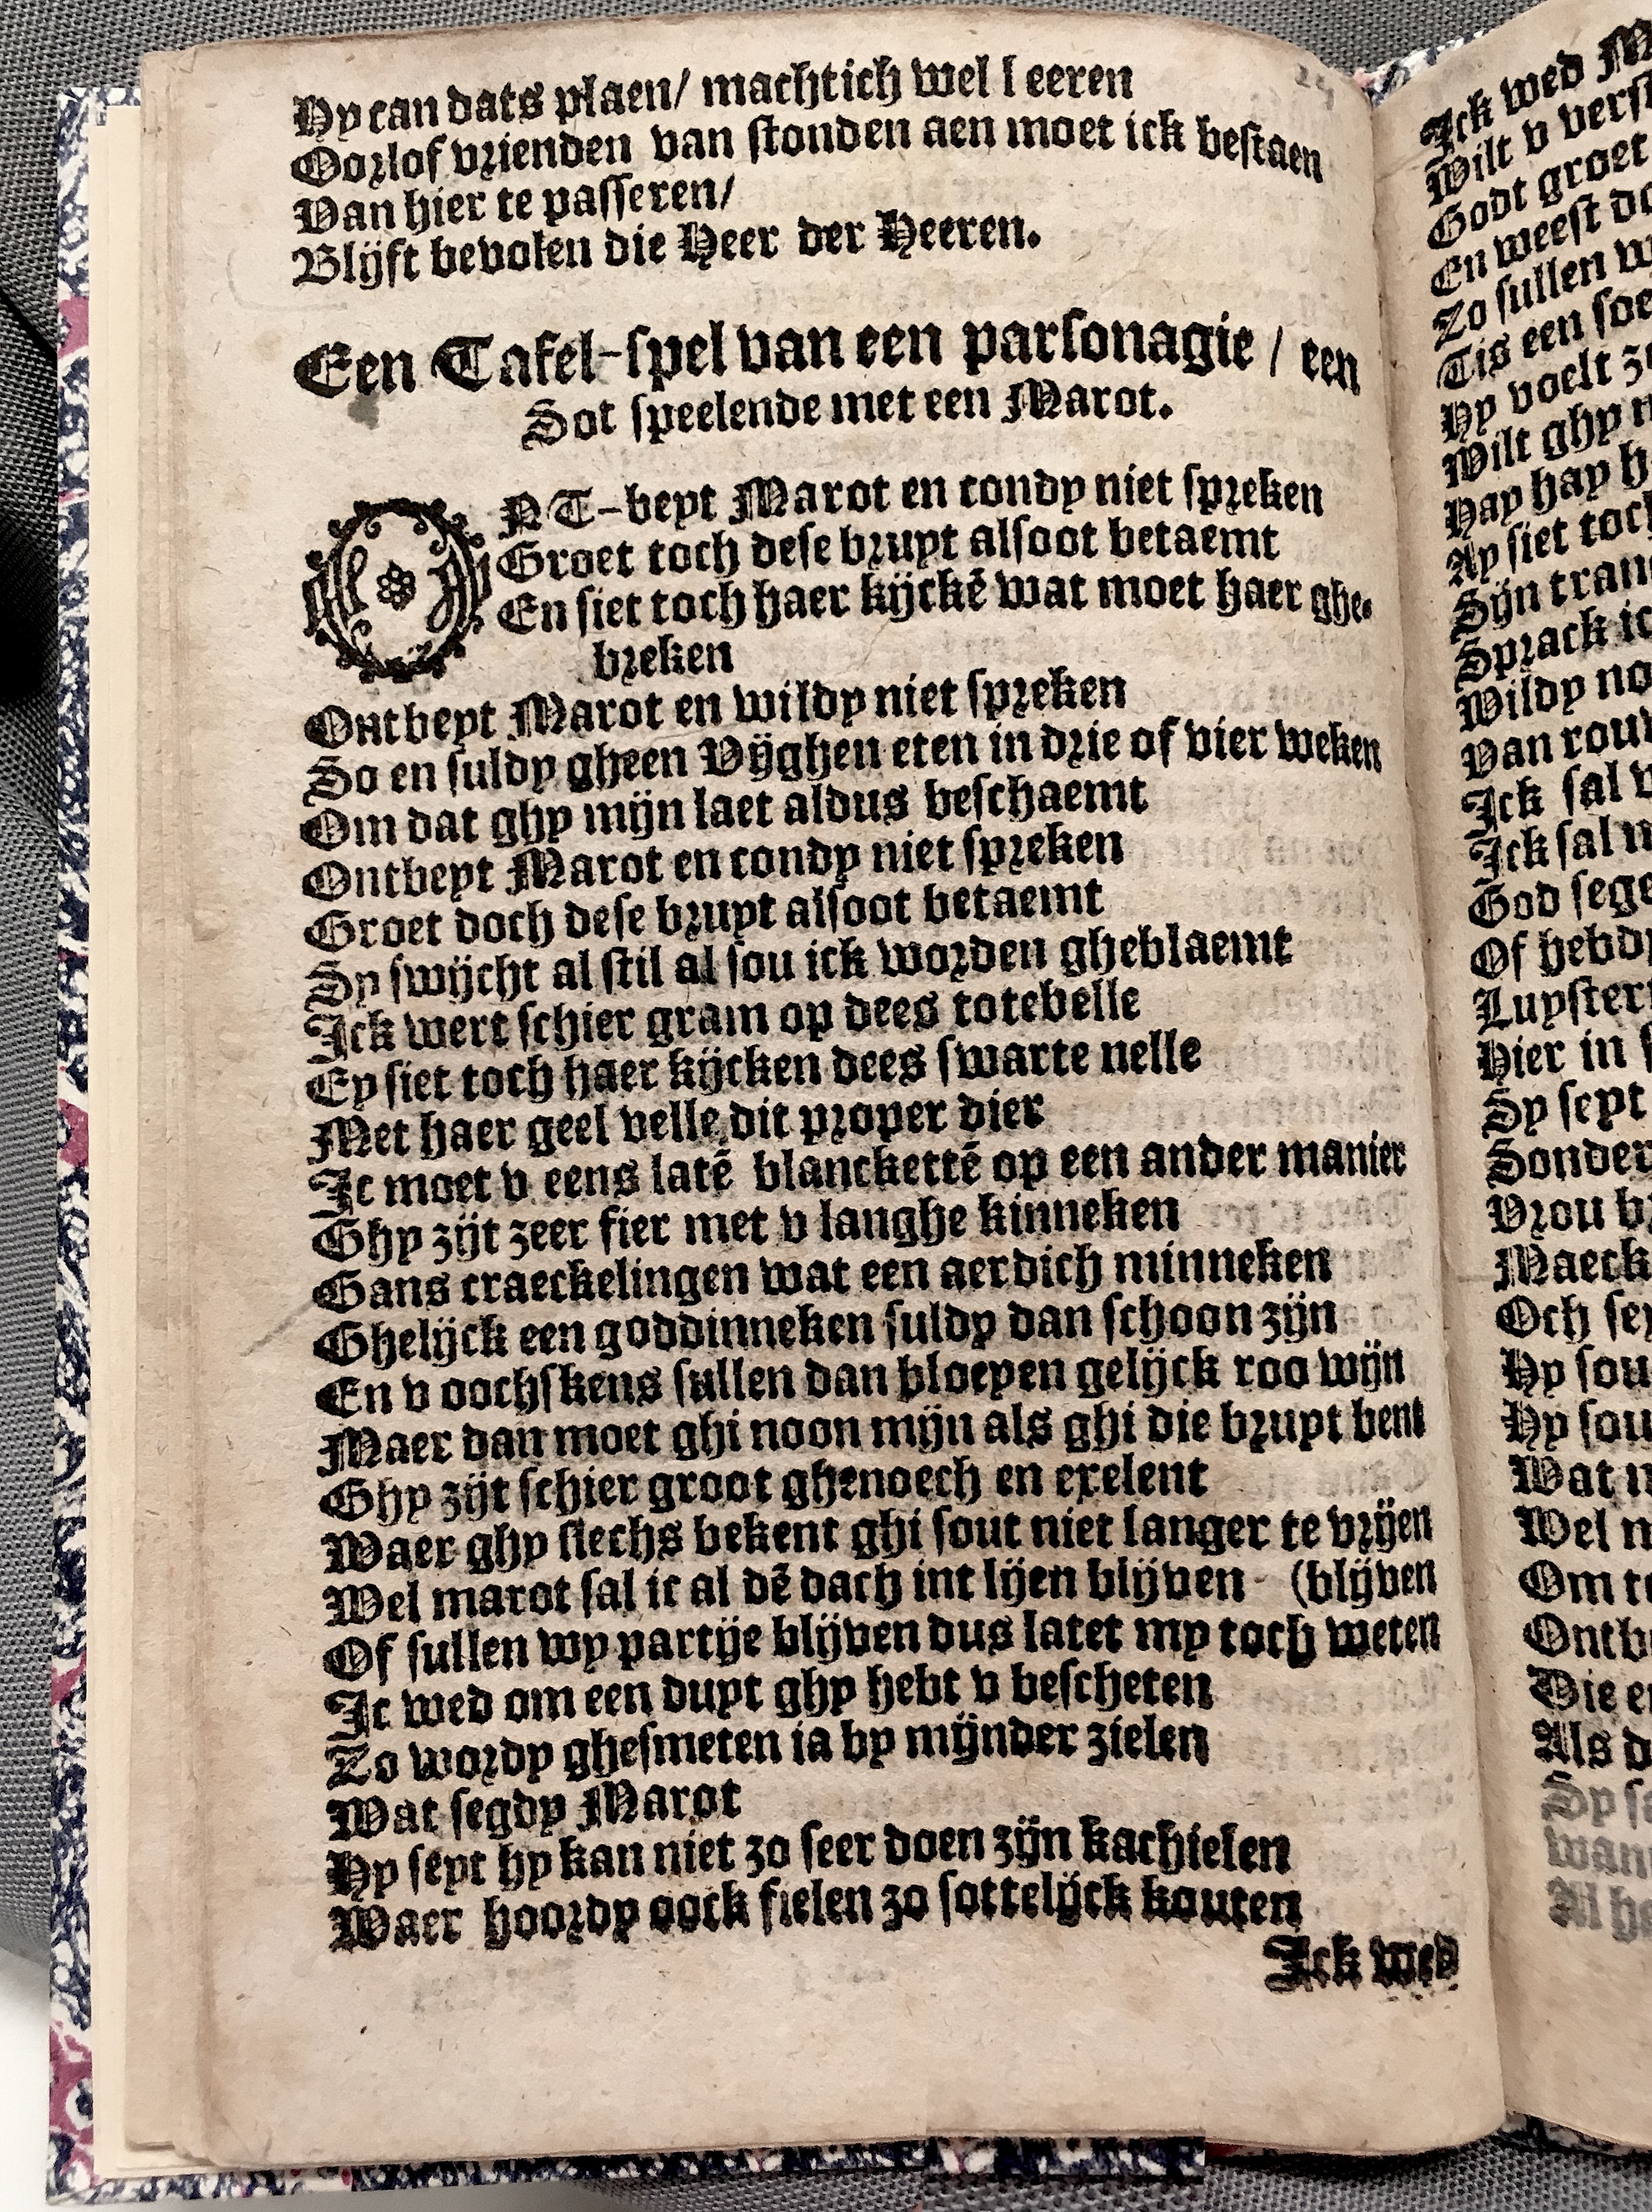 Hy can dats plaen/ machtich wel l eeren
Oorlof vrienden van stonden aen moet ick bestaen
Van hier te passeren/
Blijft bevolen die Heer der Heeren.
Een Tafel-spel van een parsonagie / een
Sot speelende met een Marot.
ONT-beyt Marot en condy niet spreken
Groet toch dese bruyt alsoot betaemt
En siet toch haer kijckē wat moet haer ghe-
breken
Ontbeyt Marot en wildy niet spreken
So en suldy gheen Vijghen eten in drie of vier weken
Om dat ghy mijn laet aldus beschaemt
Ontbeyt Marot en condy niet spreken
Groet doch dese bruyt alsoot betaemt
Sy swijcht al stil al sou ick worden gheblaemt
Ick wert schier gram op dees totebelle
Ey siet toch haer kijcken dees swarte nelle
Met haer geel velle dit proper dier
Ic moet v eens latē blanckettē op een ander manier
Ghy zijt zeer fier met v langhe kinneken
Gans craeckelingen wat een aerdich minneken
Ghelijck een goddinneken suldy dan schoon zijn
En v oochskens sullen dan bloeyen gelijck roo wijn
Maer dan moet ghi noon mijn als ghi die bruyt bent
Ghy zijt schier groot ghenoech en exelent
Waer ghy slechs bekent ghi sout niet langer te vrijen
Wel marot sal ic al dē dach int lijen blijven (blijven
Of sullen wy partije blijven dus latet my toch weten
Ic wed om een duyt ghy hebt v bescheten
Zo wordy ghesmeten ia by mijnder zielen
Wat segdy Marot
Hy seyt hy kan niet zo seer doen zijn kachielen
Waer hoordy oock fielen zo sottelijck kouten
Ick wed
Ick wed
Wilt v
Godt groet
En weest
Zo sullen
Tis een
Hy voelt
Wilt ghy
Hay hay
Ay siet
Sijn
Sprack
Wildy
Van
Ick sal
Ick sal
God
Of
Hier in
Sy seyt
Vrou
Och
Hy sou
Hy sou
Wat
Wel
Die
Als